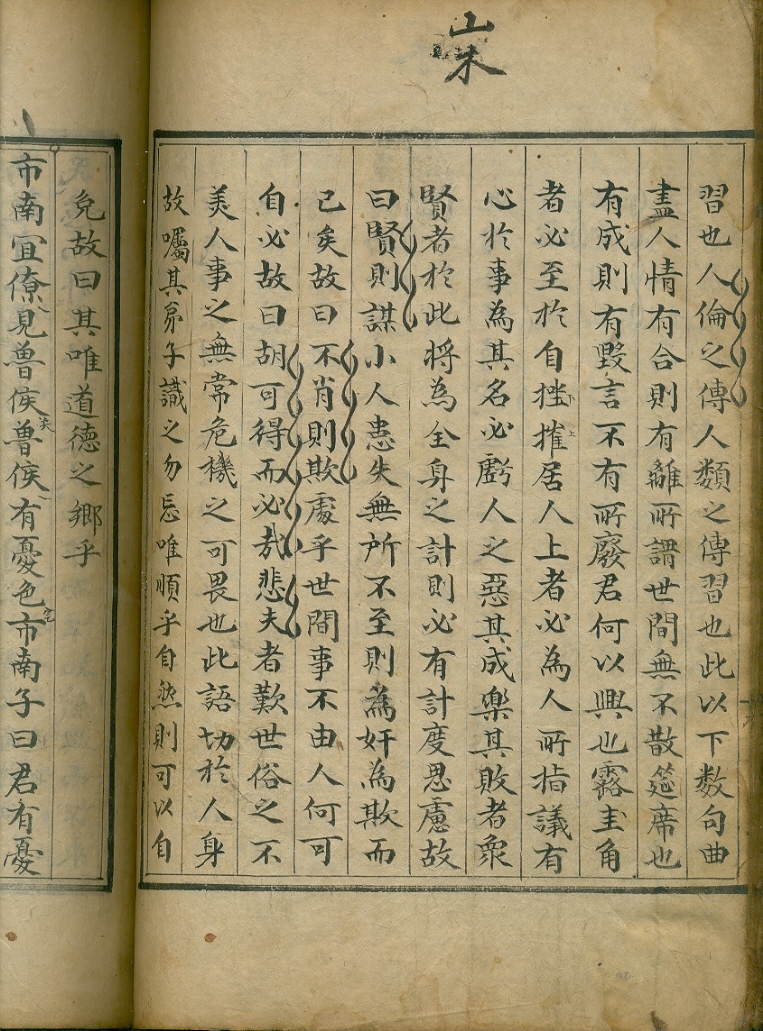 山木
習也人倫之傳人類之傳習也此以下数句曲
盡人情有合則有離所謂世間無不散筵席也
有成則有毀言不有所廢君何以興也露圭角
者必至於自挫摧居人上者必為人所指議有
心於事為其名必虧人之惡其成樂其敗者衆
賢者於此將為全身之計則必有計度思慮故
曰賢則謀小人患失無所不至則為奸為欺而
已矣故曰不肖則欺處乎世間事不由人何可
自必故曰胡可得而必哉悲夫者歎世俗之不
美人事之無常危機之可畏也此語切於人身
故囑其弟子識之勿忘唯順乎自然則可以自
免故曰其唯道德之鄉乎
市南宜僚見魯侯魯侯有憂色市南子曰君有憂